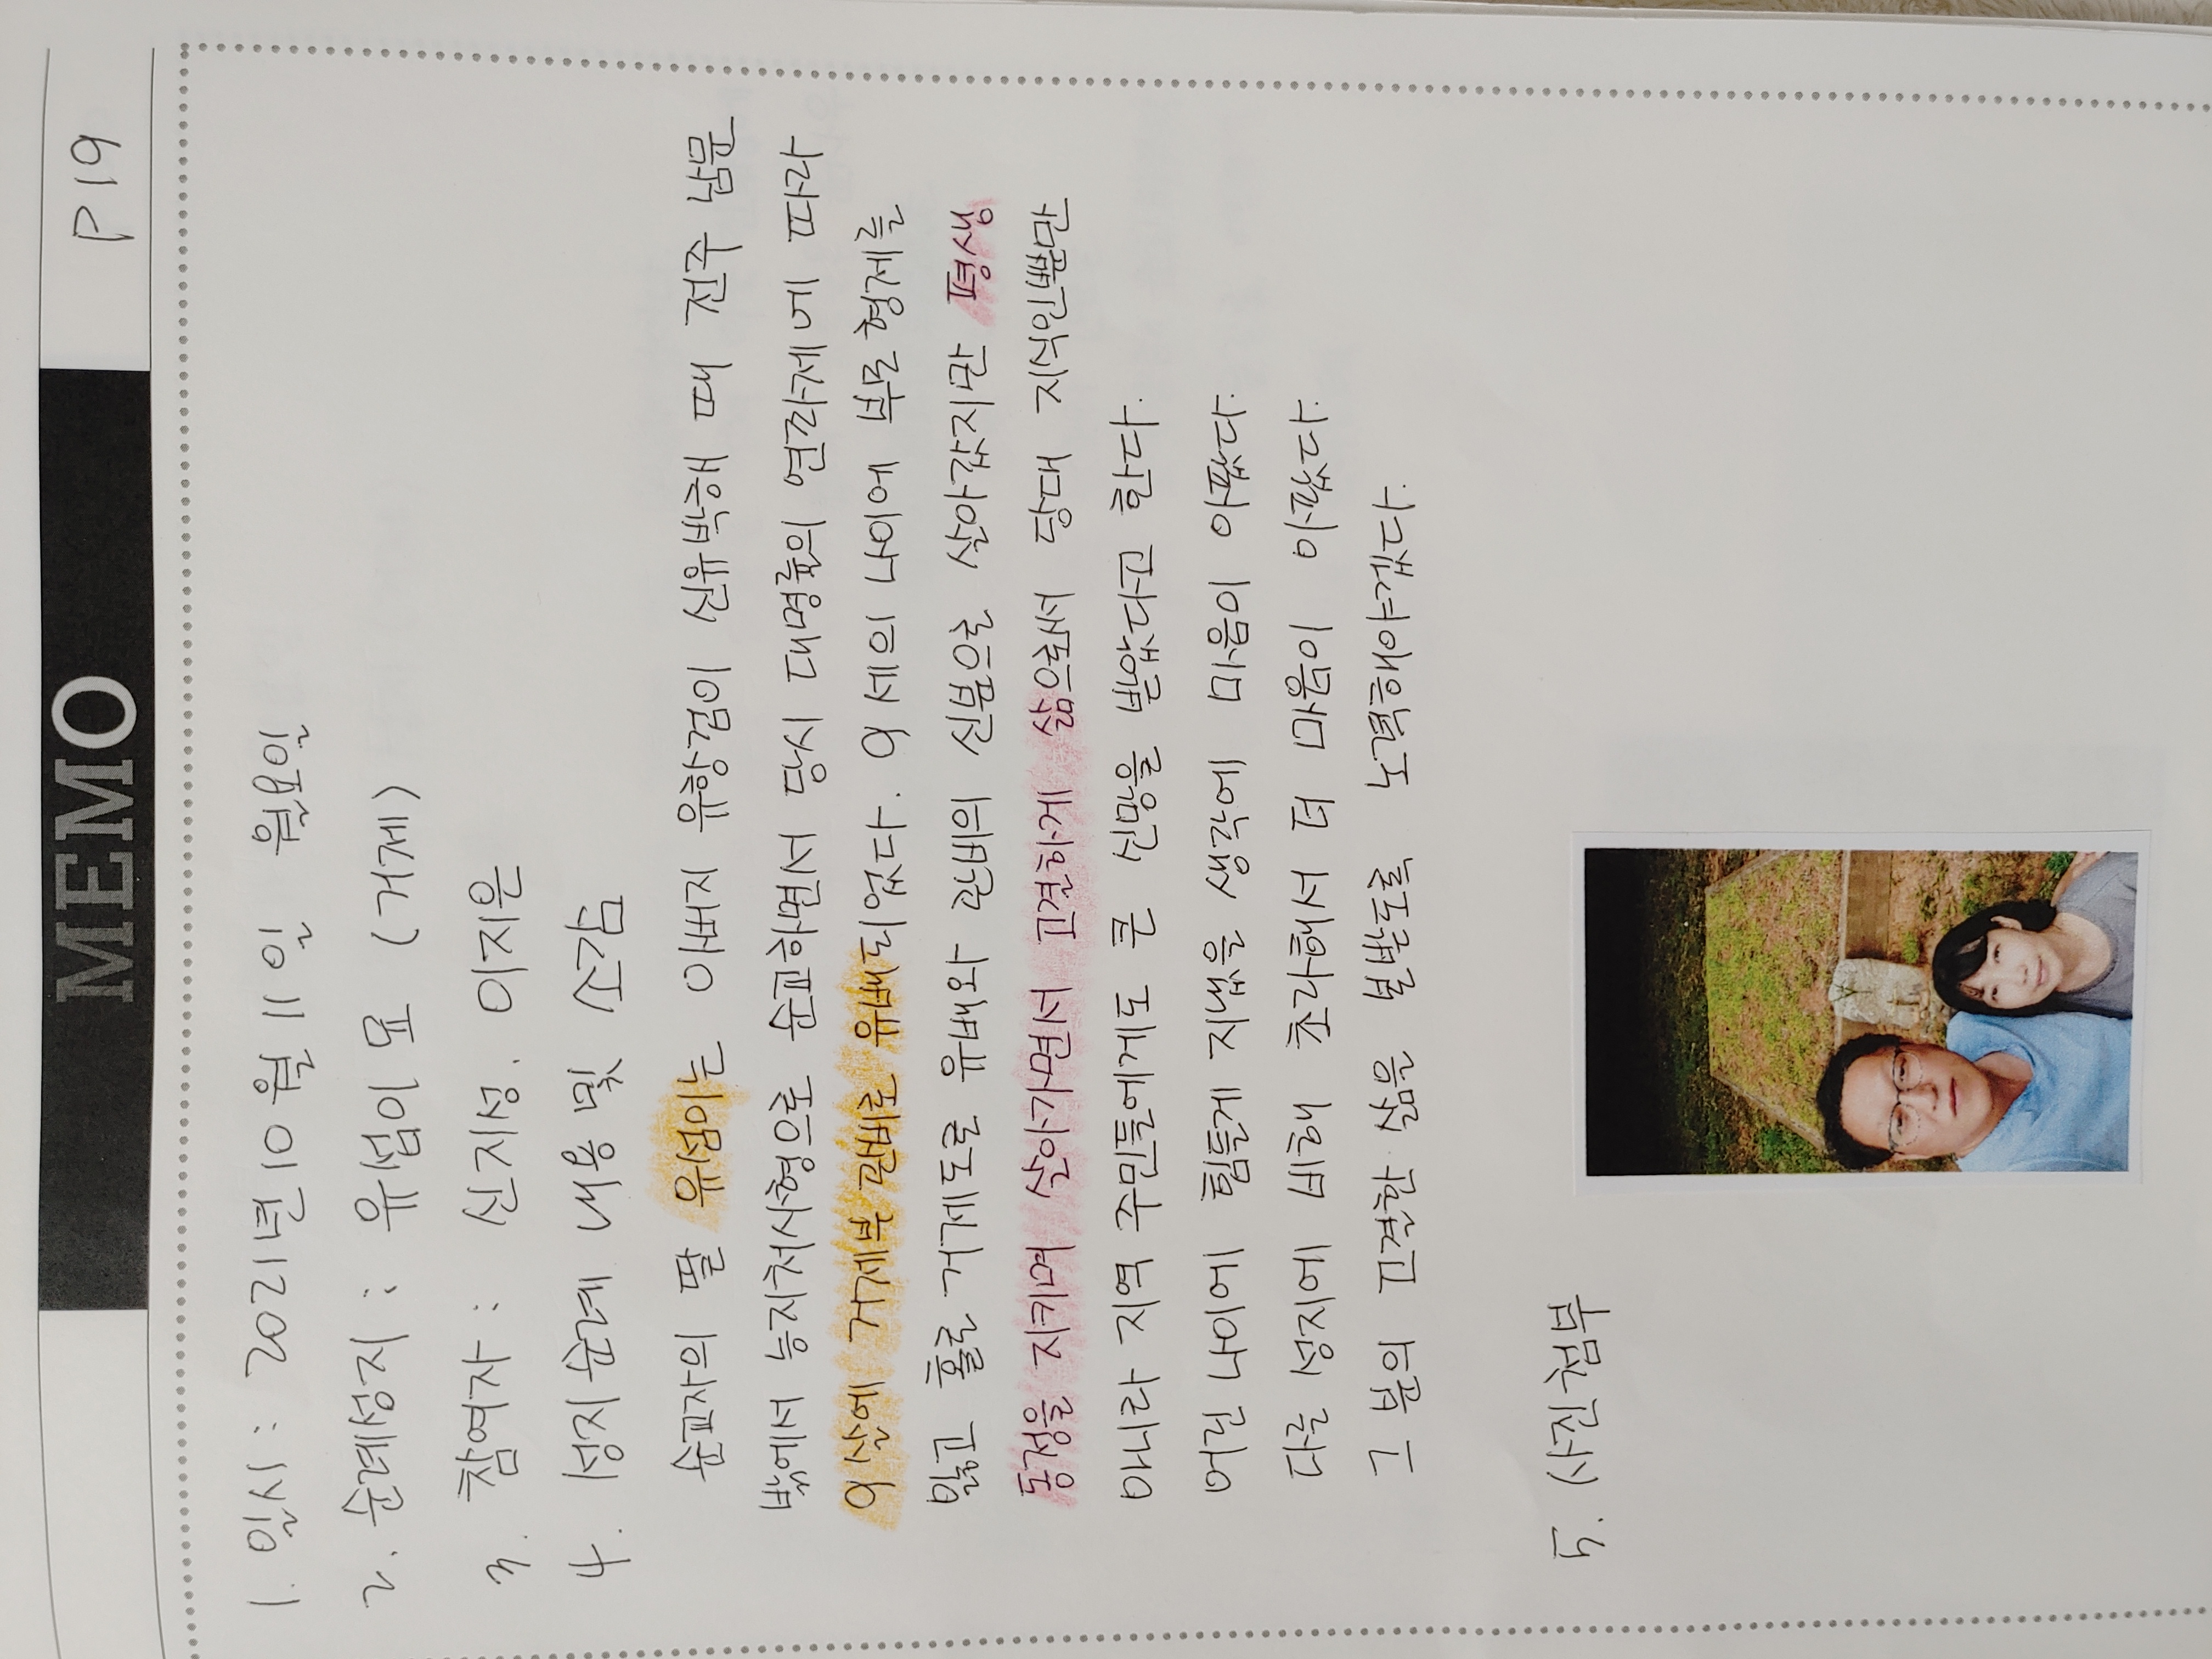 MEMO
P19
1. 일시 : 2021년 10월 11일 월요일
2. 순례성지 : 유섬이 묘 (거제)
3. 참여자 : 신지성. 이지은
4. 성지순례 내용 및 소감
순교자의 딸 유섬이는 아버지 유항검이 신유박해 때 전주 남문
밖에서 능지처사형으로 순교하면서 당시 대명률의 연좌제에 따라
9살에 거제부 관비로 유배되었다. 9세의 나이에 부모형제를
잃고 홀로 거제도로 유배와 관비의 신분으로 살아갔지만 평생
동정을 지키며 살아가면서 고결하게 삶으로써 당대 지식인뿐만
아니라 지역 주민들에게도 큰 신망을 받았다고 한다.
어린 나이에 힘들게 지냈을 생각에 마음이 아팠다.
다른 성지에 비해 초라해서 더 마음이 아팠다.
그 분의 고결한 삶을 본받도록 노력해야겠다.
5. 사진첨부